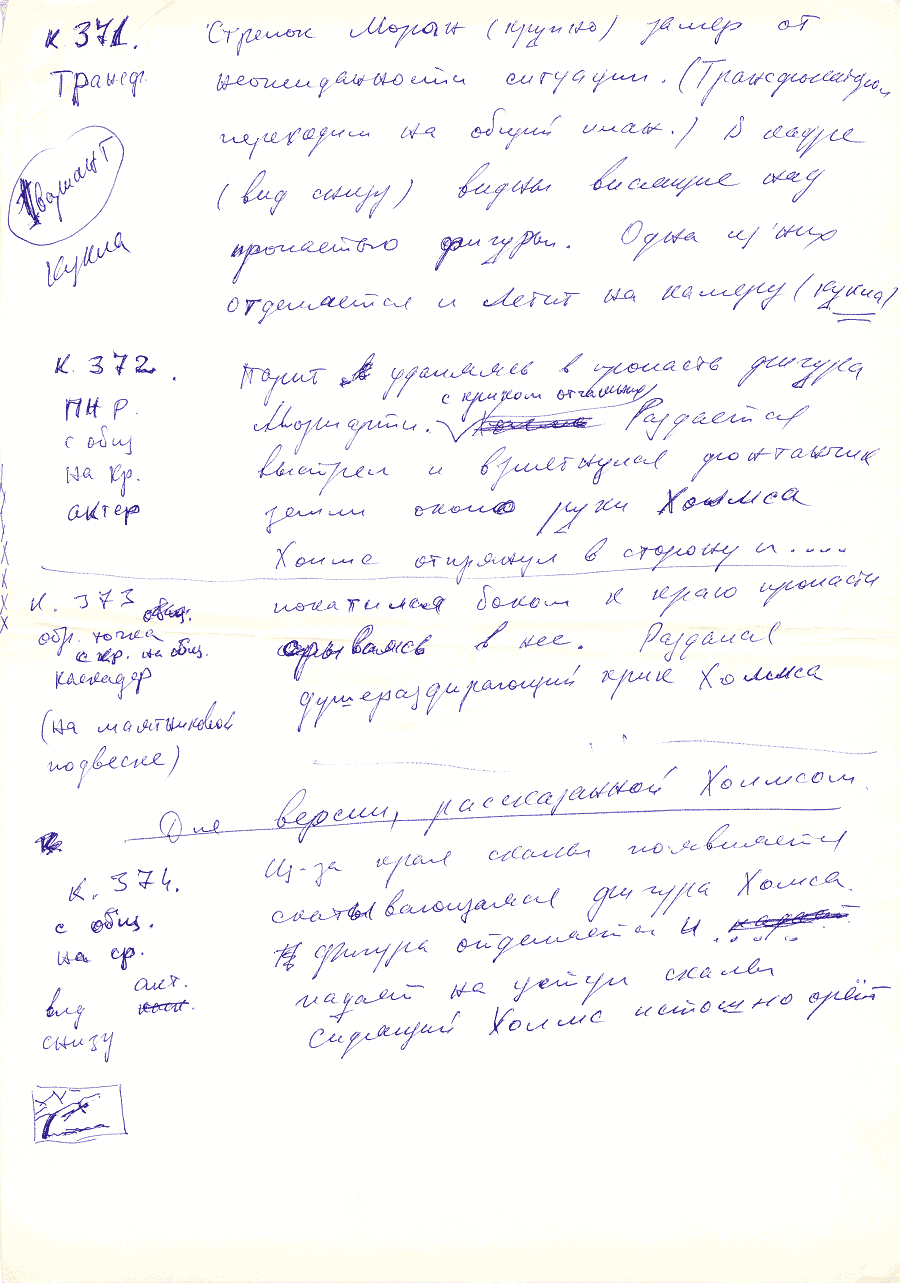 К 371. Стрелок Моран (крупно) замер от
Трансф. неожиданности ситуации. (Трансфокатором
переходим на общий план.) В кадре
1 вариант (вид снизу) видны висящие над
Кукла пропастью фигуры. Одна из них
отделяется и летит на камеру (кукла)
К. 372. Парит удаляясь в пропасть фигура
ПНР. Мориарти. с криком отчаянья Раздаётся
с общ выстрел и взметнулся фонтанчик
на кр. земли около руки Холмса
актер Холмс отпрянул в сторону и ....
К. 373 общ. покатился боком к краю пропасти
обр. точка срываясь в нее. Раздался
с кр. на общ. душераздирающий крик Холмса
каскадер
(на маятниковой
подвеске)
Для версии, рассказанной Холмсом.
К. 374. Из-за края скалы появляется
с общ. скатывающаяся фигура Холмса.
на ср. фигура отделяется и .....
вид акт. падает на уступ скалы
снизу Сидящий Холмс истошно орёт